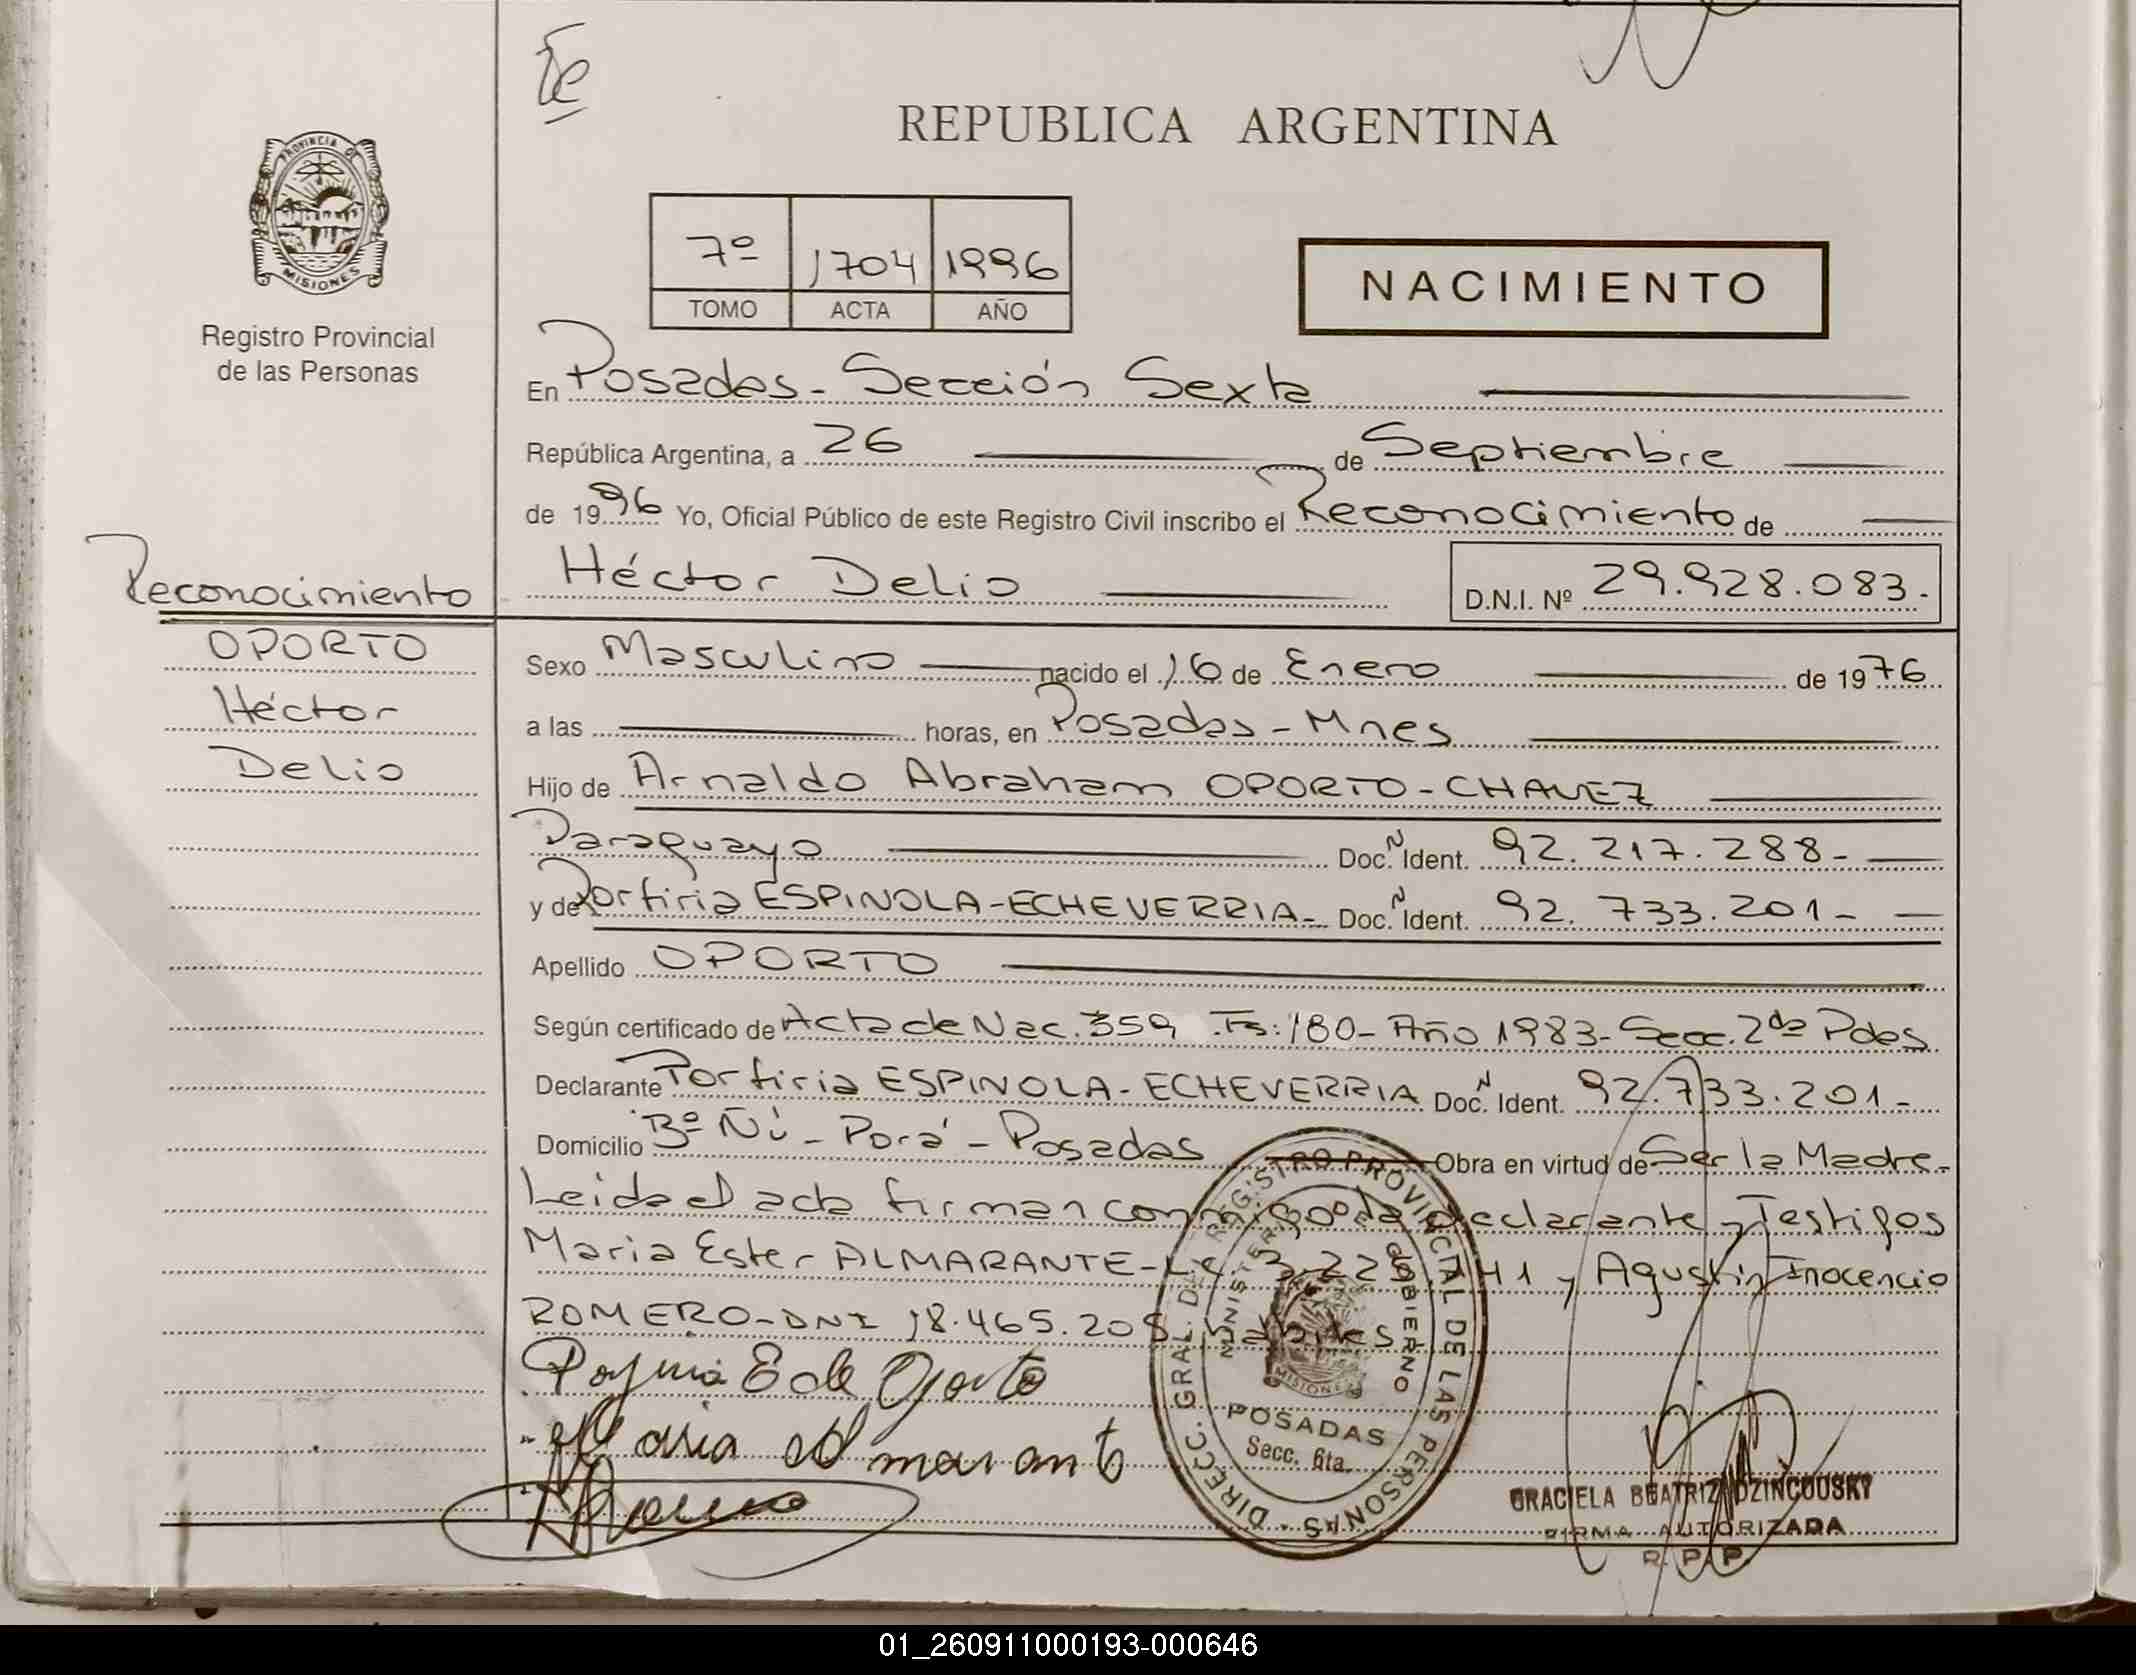 Te
REPUBLICA ARGENTINA
PROVINCIA DE
MISIONES
Registro Provincial
de las Personas
7º 1704 1996
TOMO ACTA AÑO
NACIMIENTO
En Posadas - Sección Sexta
República Argentina, a 26 de Septiembre
de 1996 Yo, Oficial Público de este Registro Civil inscribo el Reconocimiento de
Héctor Delio D.N.I. Nº 29.928.083.
Reconocimiento
OPORTO
Héctor
Delio
Sexo Masculino nacido el 16 de Enero de 1976
a las horas, en Posadas - Mnes
Hijo de Arnaldo Abraham OPORTO - CHAVEZ
Paraguayo Doc. N Ident. 92.217.288-
y de Porfiria ESPINOLA-ECHEVERRIA- Doc. N Ident. 92.733.201-
Apellido OPORTO
Según certificado de Acta de Nac. 359 Fs: 180 - Año 1983 - Secc. 2da Pdas
Declarante Porfiria ESPINOLA-ECHEVERRIA Doc. N Ident. 92.733.201-
Domicilio Bº Ñu - Porá - Posadas Obra en virtud de Ser la Madre-
Leida el acta firman conmigo la declarante y Testigos
Maria Ester ALMARANTE - L.C. 3.223. 41 y Agustin Inocencio
ROMERO - DNI 18.465.205 habiles
Porfiria E de Oporto
Maria Almarante
DIRECC. GRAL. DEL REGISTRO PROVINCIAL DE LAS PERSONAS
MINISTERIO de GOBIERNO
MISIONES
POSADAS
Secc. 6ta.
GRACIELA BEATRIZ DZINCOUSKY
FIRMA AUTORIZADA
R. P. P.
01_260911000193-000646